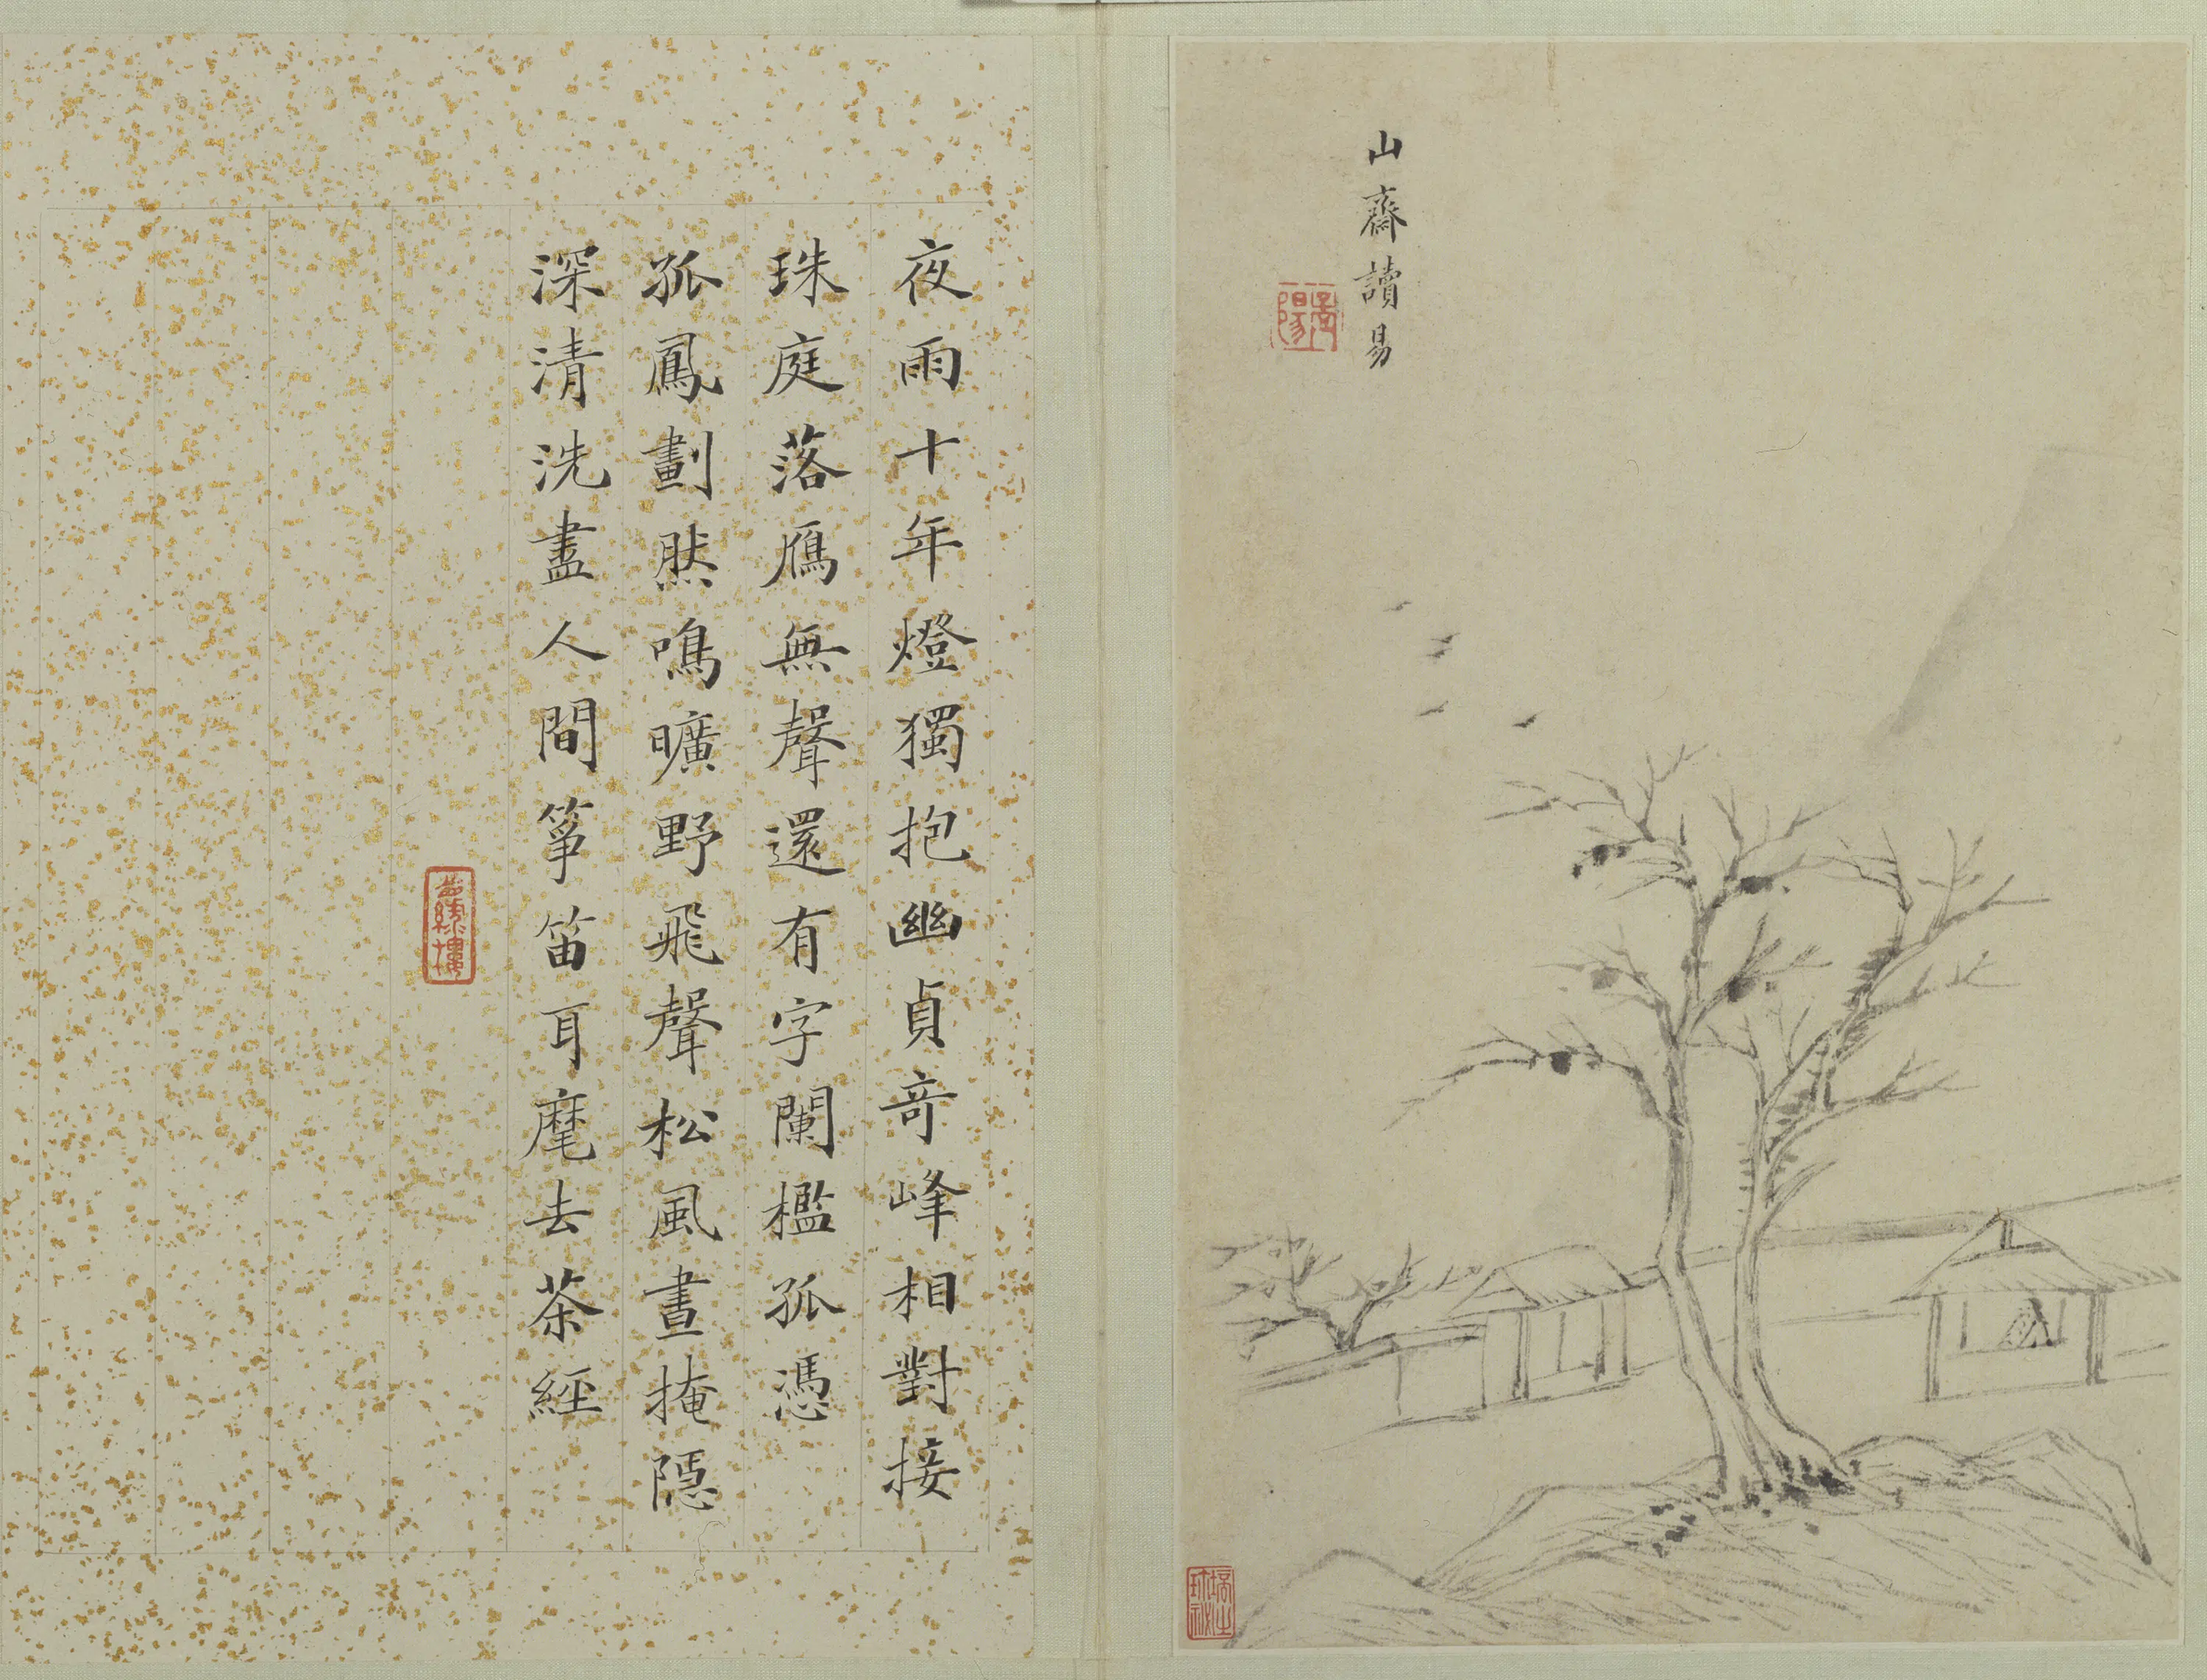 山齋讀易
夜雨十年燈獨抱幽貞奇峰相對接
珠庭落鴈無聲還有字闌檻孤憑
孤鳳劃然鳴曠野飛聲松風晝掩隱
深清洗盡人間箏笛耳麾去茶經